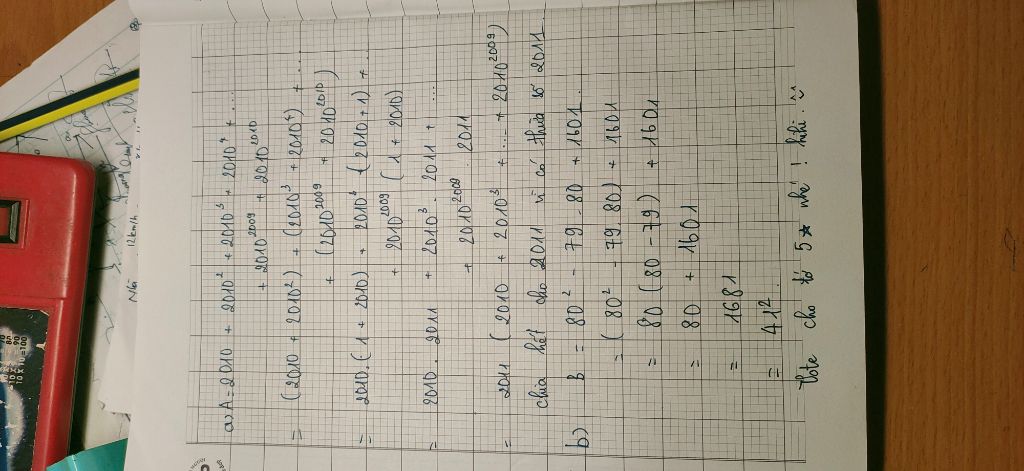 a) A = 2010 + 2010² + 2010³ + 2010⁴ + ...
+ 2010²⁰⁰⁹ + 2010²⁰¹⁰
= (2010 + 2010²) + (2010³ + 2010⁴) + ...
+ (2010²⁰⁰⁹ + 2010²⁰¹⁰)
= 2010.(1 + 2010) + 2010³ (2010 + 1) + ...
+ 2010²⁰⁰⁹ (1 + 2010)
= 2010 . 2011 + 2010³ . 2011 + ...
+ 2010²⁰⁰⁹ . 2011
= 2011 (2010 + 2010³ + ... + 2010²⁰⁰⁹)
chia hết cho 2011 vì có thừa số 2011
b) B = 80² - 79 . 80 + 1601.
= (80² - 79.80) + 1601
= 80 (80 - 79) + 1601
= 80 + 1601
= 1681
= 41².
Vote cho tớ 5 ★ nhé ! hihi.
12km/h